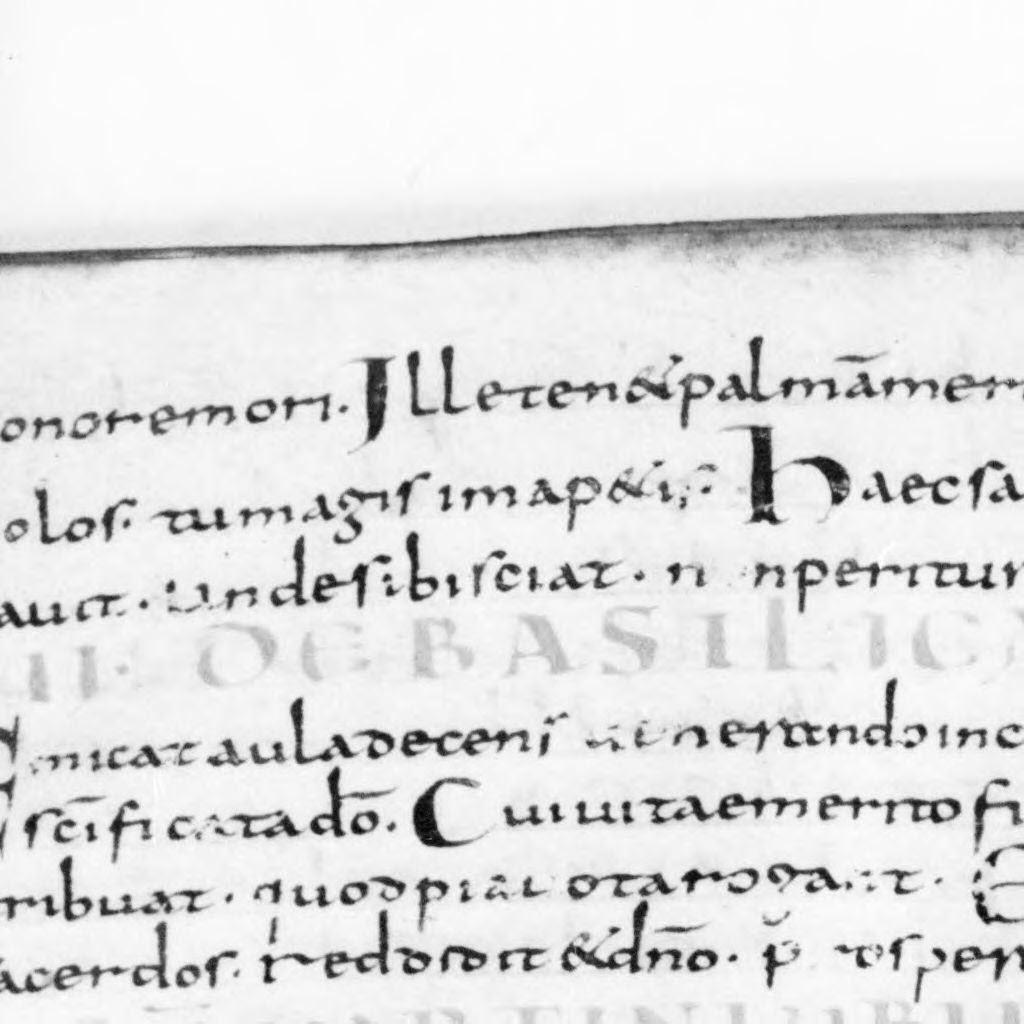 onoremori. Illeten&palmāmeri
olos. tumagis imap&is. Haecsa
auit. undesibisciat. n nperitur
II. DE BASILICA
Emicatauladecens uenerandoinc
scīficatadō. Cuiuitaemerito fi
ribuat. quodpiauotarogant. E
acerdos. reddidit&dño. p̄ ospert
MARTINI URBI